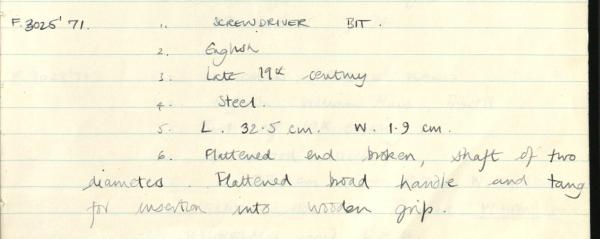 F.3025'71. 1. SCREWDRIVER BIT.
2. English
3. Late 19th century
4. Steel.
5. L. 32.5 cm. W. 1.9 cm.
6. Flattened end broken, shaft of two
diameters. Flattened broad handle and tang
for insertion into wooden grip.